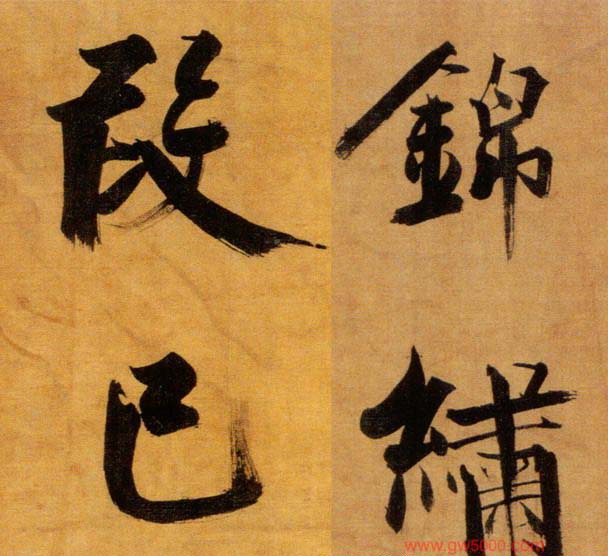 錦繡
段已
www.gw5000.com